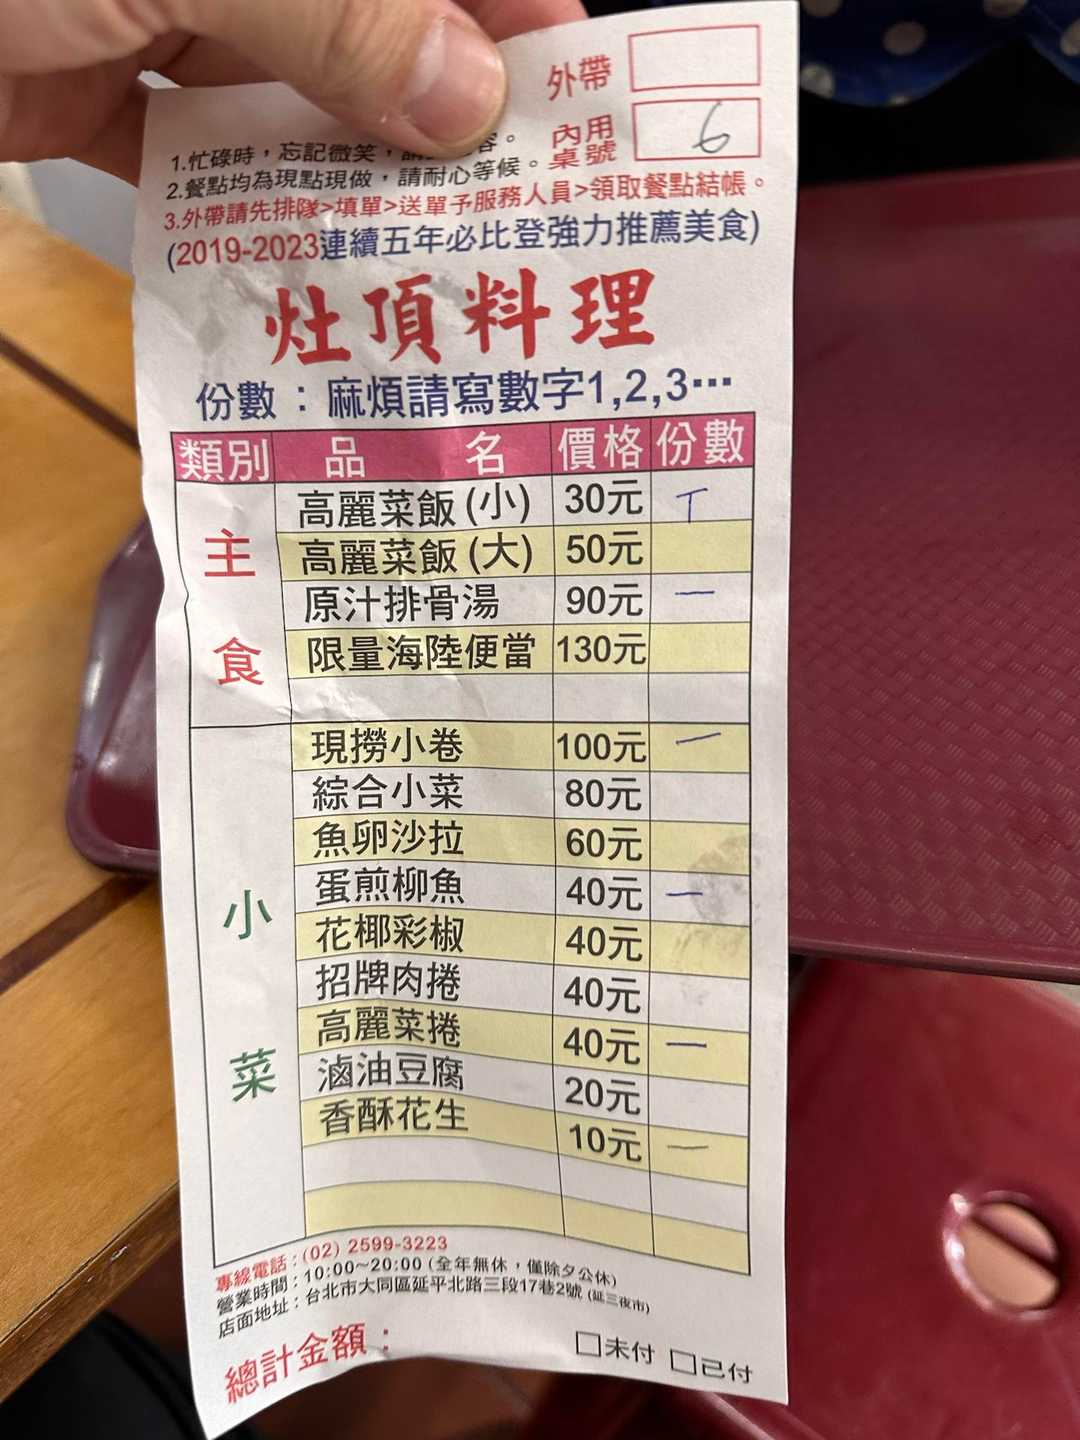 外帶
內用桌號 6
1.忙碌時，忘記微笑，請 容。
2.餐點均為現點現做，請耐心等候。
3.外帶請先排隊>填單>送單予服務人員>領取餐點結帳。
(2019-2023連續五年必比登強力推薦美食)
灶頂料理
份數：麻煩請寫數字1,2,3…
類別 品名 價格 份數
主食
高麗菜飯(小) 30元 T
高麗菜飯(大) 50元
原汁排骨湯 90元 一
限量海陸便當 130元
小菜
現撈小卷 100元 一
綜合小菜 80元
魚卵沙拉 60元
蛋煎柳魚 40元 一
花椰彩椒 40元
招牌肉捲 40元
高麗菜捲 40元 一
滷油豆腐 20元
香酥花生 10元 一
專線電話：(02) 2599-3223
營業時間：10:00~20:00 (全年無休，僅除夕公休)
店面地址：台北市大同區延平北路三段17巷2號 (延三夜市)
總計金額：
□未付 □已付